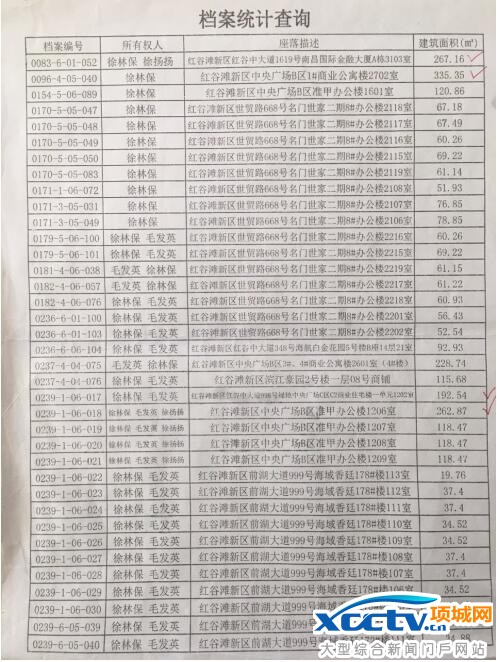 档案统计查询
档案编号 所有权人 座落描述 建筑面积(㎡)
0083-6-01-052 徐林保 徐扬扬 红谷滩新区红谷中大道1619号南昌国际金融大厦A栋3103室 267.16
0096-4-05-040 徐林保 红谷滩新区中央广场B区1#商业公寓楼2702室 335.35
0154-5-06-089 徐林保 红谷滩新区中央广场B区准甲办公楼1601室 120.86
0170-5-05-047 徐林保 红谷滩新区世贸路668号名门世家二期8#办公楼2118室 67.18
0170-5-05-048 徐林保 红谷滩新区世贸路668号名门世家二期8#办公楼2117室 67.49
0170-5-05-049 徐林保 红谷滩新区世贸路668号名门世家二期8#办公楼2116室 60.26
0170-5-05-050 徐林保 红谷滩新区世贸路668号名门世家二期8#办公楼2115室 69.22
0170-5-05-083 徐林保 红谷滩新区世贸路668号名门世家二期8#办公楼2119室 61.14
0171-1-06-072 徐林保 红谷滩新区世贸路668号名门世家二期8#办公楼2108室 51.93
0171-3-05-031 徐林保 红谷滩新区世贸路668号名门世家二期8#办公楼2107室 76.85
0171-3-05-049 徐林保 红谷滩新区世贸路668号名门世家二期8#办公楼2106室 78.85
0179-5-06-100 徐林保 毛发英 红谷滩新区世贸路668号名门世家二期8#办公楼2216室 60.26
0179-5-06-101 徐林保 毛发英 红谷滩新区世贸路668号名门世家二期8#办公楼2215室 69.22
0181-4-06-038 毛发英 徐林保 红谷滩新区世贸路668号名门世家二期8#办公楼2219室 61.15
0182-4-06-057 毛发英 徐林保 红谷滩新区世贸路668号名门世家二期8#办公楼2217室 61.12
0182-4-06-076 徐林保 毛发英 红谷滩新区世贸路668号名门世家二期8#办公楼2218室 60.93
0236-6-01-100 徐林保 毛发英 红谷滩新区世贸路668号名门世家二期8#办公楼2201室 56.43
0236-6-01-103 徐林保 毛发英 红谷滩新区世贸路668号名门世家二期8#办公楼2202室 52.54
0236-6-06-104 徐林保 毛发英 红谷滩新区红谷中大道348号海航白金花园5号楼B座14层21室 92.93
0237-4-04-075 徐林保 毛发英 红谷滩新区中央广场B区3#、4#商业公寓楼2601室(4#楼) 228.74
0237-4-04-076 徐林保 毛发英 红谷滩新区滨江豪园2号楼一层08号商铺 115.68
0239-1-06-017 徐林保 毛发英 徐扬扬 红谷滩新区红谷中大道998号绿地中央广场C区C2商业住宅楼一单元1202室 192.54
0239-1-06-018 徐林保 毛发英 徐扬扬 红谷滩新区中央广场B区准甲办公楼1206室 262.87
0239-1-06-019 徐林保 毛发英 徐扬扬 红谷滩新区中央广场B区准甲办公楼1207室 118.47
0239-1-06-020 徐林保 毛发英 徐扬扬 红谷滩新区中央广场B区准甲办公楼1208室 118.47
0239-1-06-021 徐林保 毛发英 徐扬扬 红谷滩新区中央广场B区准甲办公楼1209室 118.47
0239-1-06-022 徐林保 毛发英 红谷滩新区前湖大道999号海域香廷178#楼113室 19.76
0239-1-06-024 徐林保 毛发英 红谷滩新区前湖大道999号海域香廷178#楼112室 37.4
0239-1-06-025 徐林保 毛发英 红谷滩新区前湖大道999号海域香廷178#楼110室 34.52
0239-1-06-026 徐林保 毛发英 红谷滩新区前湖大道999号海域香廷178#楼109室 34.52
0239-1-06-027 徐林保 毛发英 红谷滩新区前湖大道999号海域香廷178#楼108室 37.4
0239-1-06-028 徐林保 毛发英 红谷滩新区前湖大道999号海域香廷178#楼107室 37.4
0239-1-06-029 徐林保 毛发英 红谷滩新区前湖大道999号海域香廷178#楼106室 34.52
0239-1-06-030 徐林保 毛发英 红谷滩新区前湖大道999号海域香廷178#
0239-6-05-039 徐林保 毛发英
0239-6-05-040 徐林保 毛发英 34.88
XCCTV.CN 项城网
大型综合新闻门戶网站